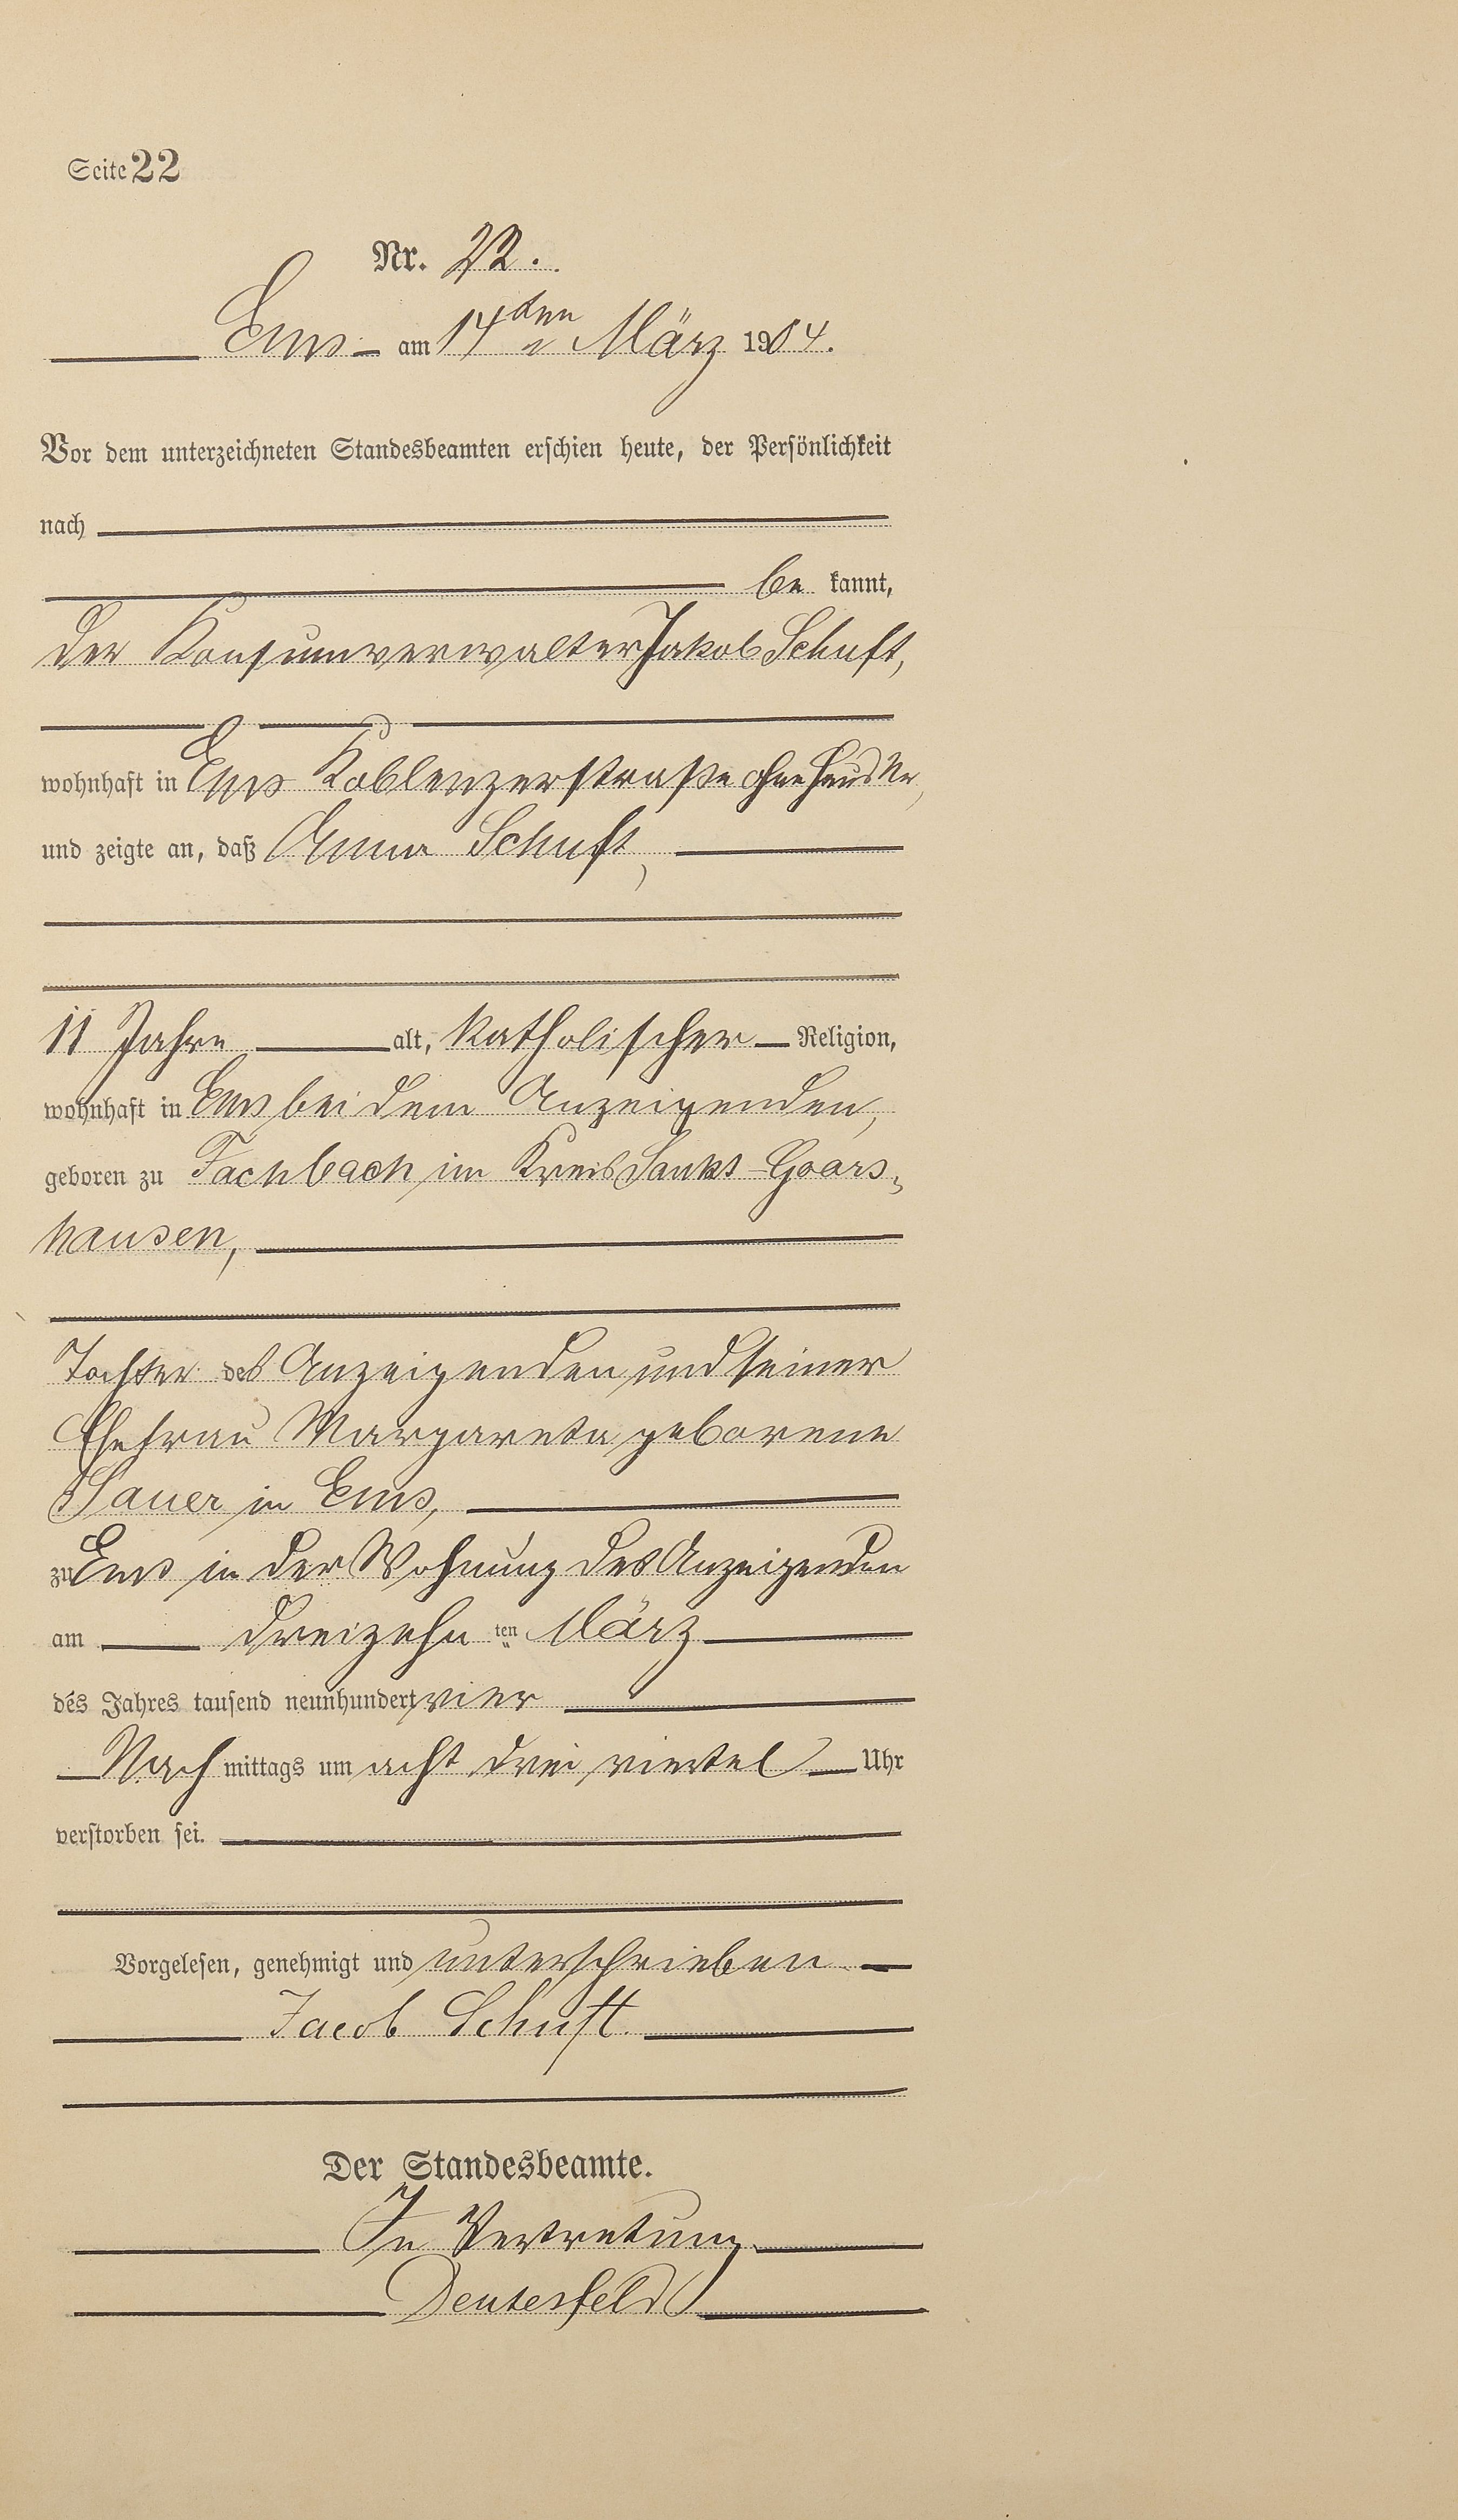 Seite 22
Nr. 22.
Ems am 14ten März 1904.
Vor dem unterzeichneten Standesbeamten erschien heute, der Persönlichkeit
nach
be kannt,
der Konsumverwalter Jakob Schuft,
wohnhaft in Ems Koblenzerstraße ohne Haus Nr,
und zeigte an, daß Anna Schuft,
11 Jahre alt, katholischer Religion,
wohnhaft in Ems bei dem Anzeigenden,
geboren zu Fachbach im Kreis Sankt Goars-
hausen,
Tochter des Anzeigenden und seiner
Ehefrau Margareta geborene
Sauer in Ems,
zu Ems in der Wohnung des Anzeigenden
am dreizehn ten März
des Jahres tausend neunhundert vier
Nach mittags um acht drei viertel Uhr
verstorben sei.
Vorgelesen, genehmigt und unterschrieben
Jacob Schuft.
Der Standesbeamte.
In Vertretung
Deutesfeld